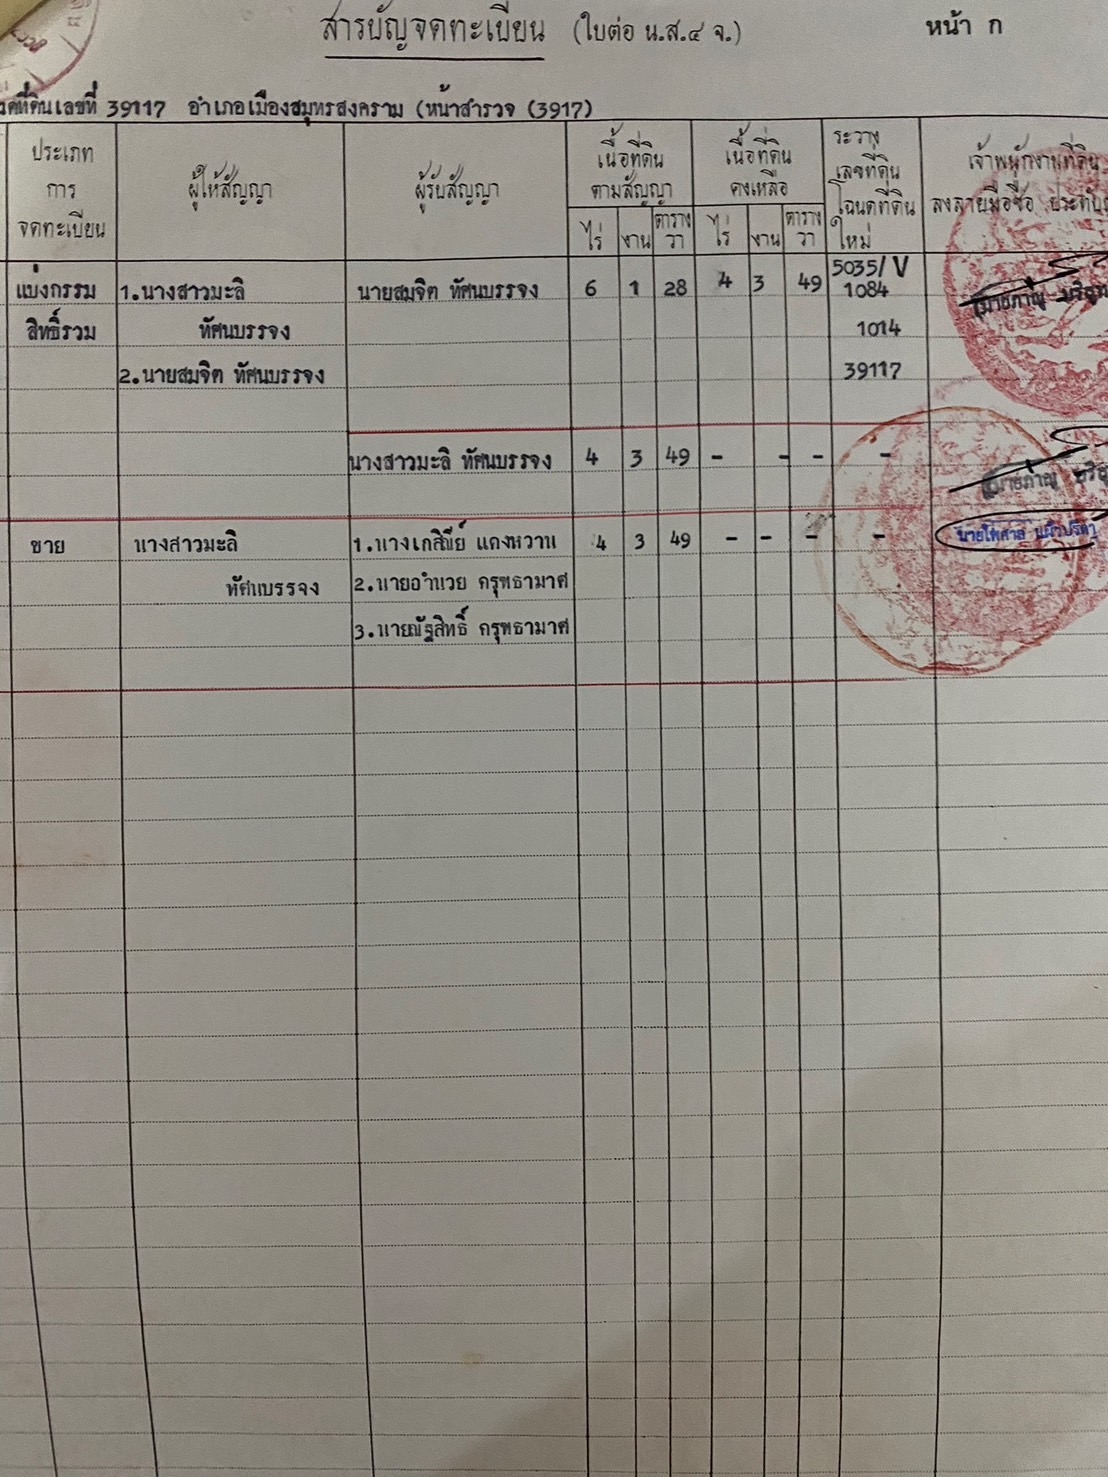 สารบัญจดทะเบียน (ใบต่อ น.ส.๔ จ.) หน้า ก
ที่ดินเลขที่ 39117 อำเภอเมืองสมุทรสงคราม (หน้าสำรวจ (3917)
ประเภท
การ
จดทะเบียน
ผู้ให้สัญญา
ผู้รับสัญญา
เนื้อที่ดิน
ตามสัญญา
ไร่ งาน ตาราง
วา
เนื้อที่ดิน
คงเหลือ
ไร่ งาน ตาราง
วา
ระวาง
เลขที่ดิน
โฉนดที่ดิน
ใหม่
เจ้าพนักงานที่ดิน
ลงลายมือชื่อ
5035/V
แบ่งกรรม 1.นางสาวมะลิ นายสมจิต ทัศนบรรจง 6 1 28 4 3 49 1084
สิทธิ์รวม ทัศนบรรจง 1014
2.นายสมจิต ทัศนบรรจง 39117
นางสาวมะลิ ทัศนบรรจง 4 3 49 - - - -
ขาย นางสาวมะลิ 1.นางเกสิณีย์ แดงหวาน 4 3 49 - - - -
ทัศนบรรจง 2.นายอำนวย ครุฑธามาศ
3.นายณัฐสิทธิ์ ครุฑธามาศ